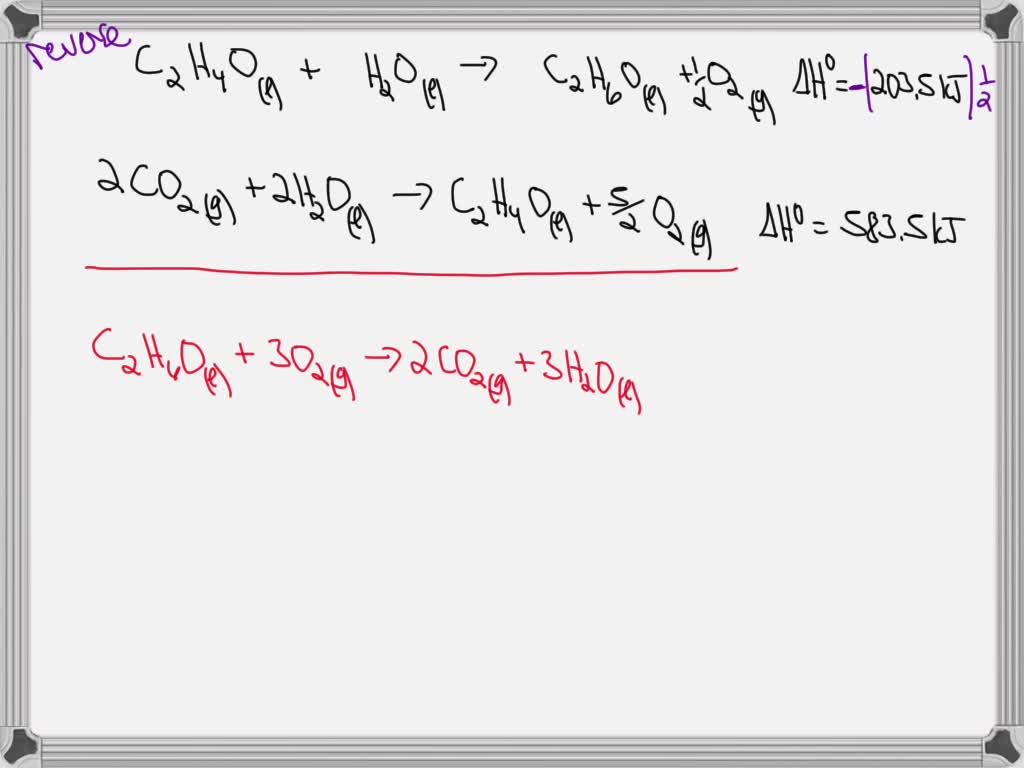 reverse
C₂H₄O(l) + H₂O(l) → C₂H₆O(l) + 1/2 O₂(g) ΔH° = -|203.5 kJ| 1/2
2CO₂(g) + 2H₂O(l) → C₂H₄O(l) + 5/2 O₂(g) ΔH° = 583.5 kJ
C₂H₆O(l) + 3O₂(g) → 2CO₂(g) + 3H₂O(l)